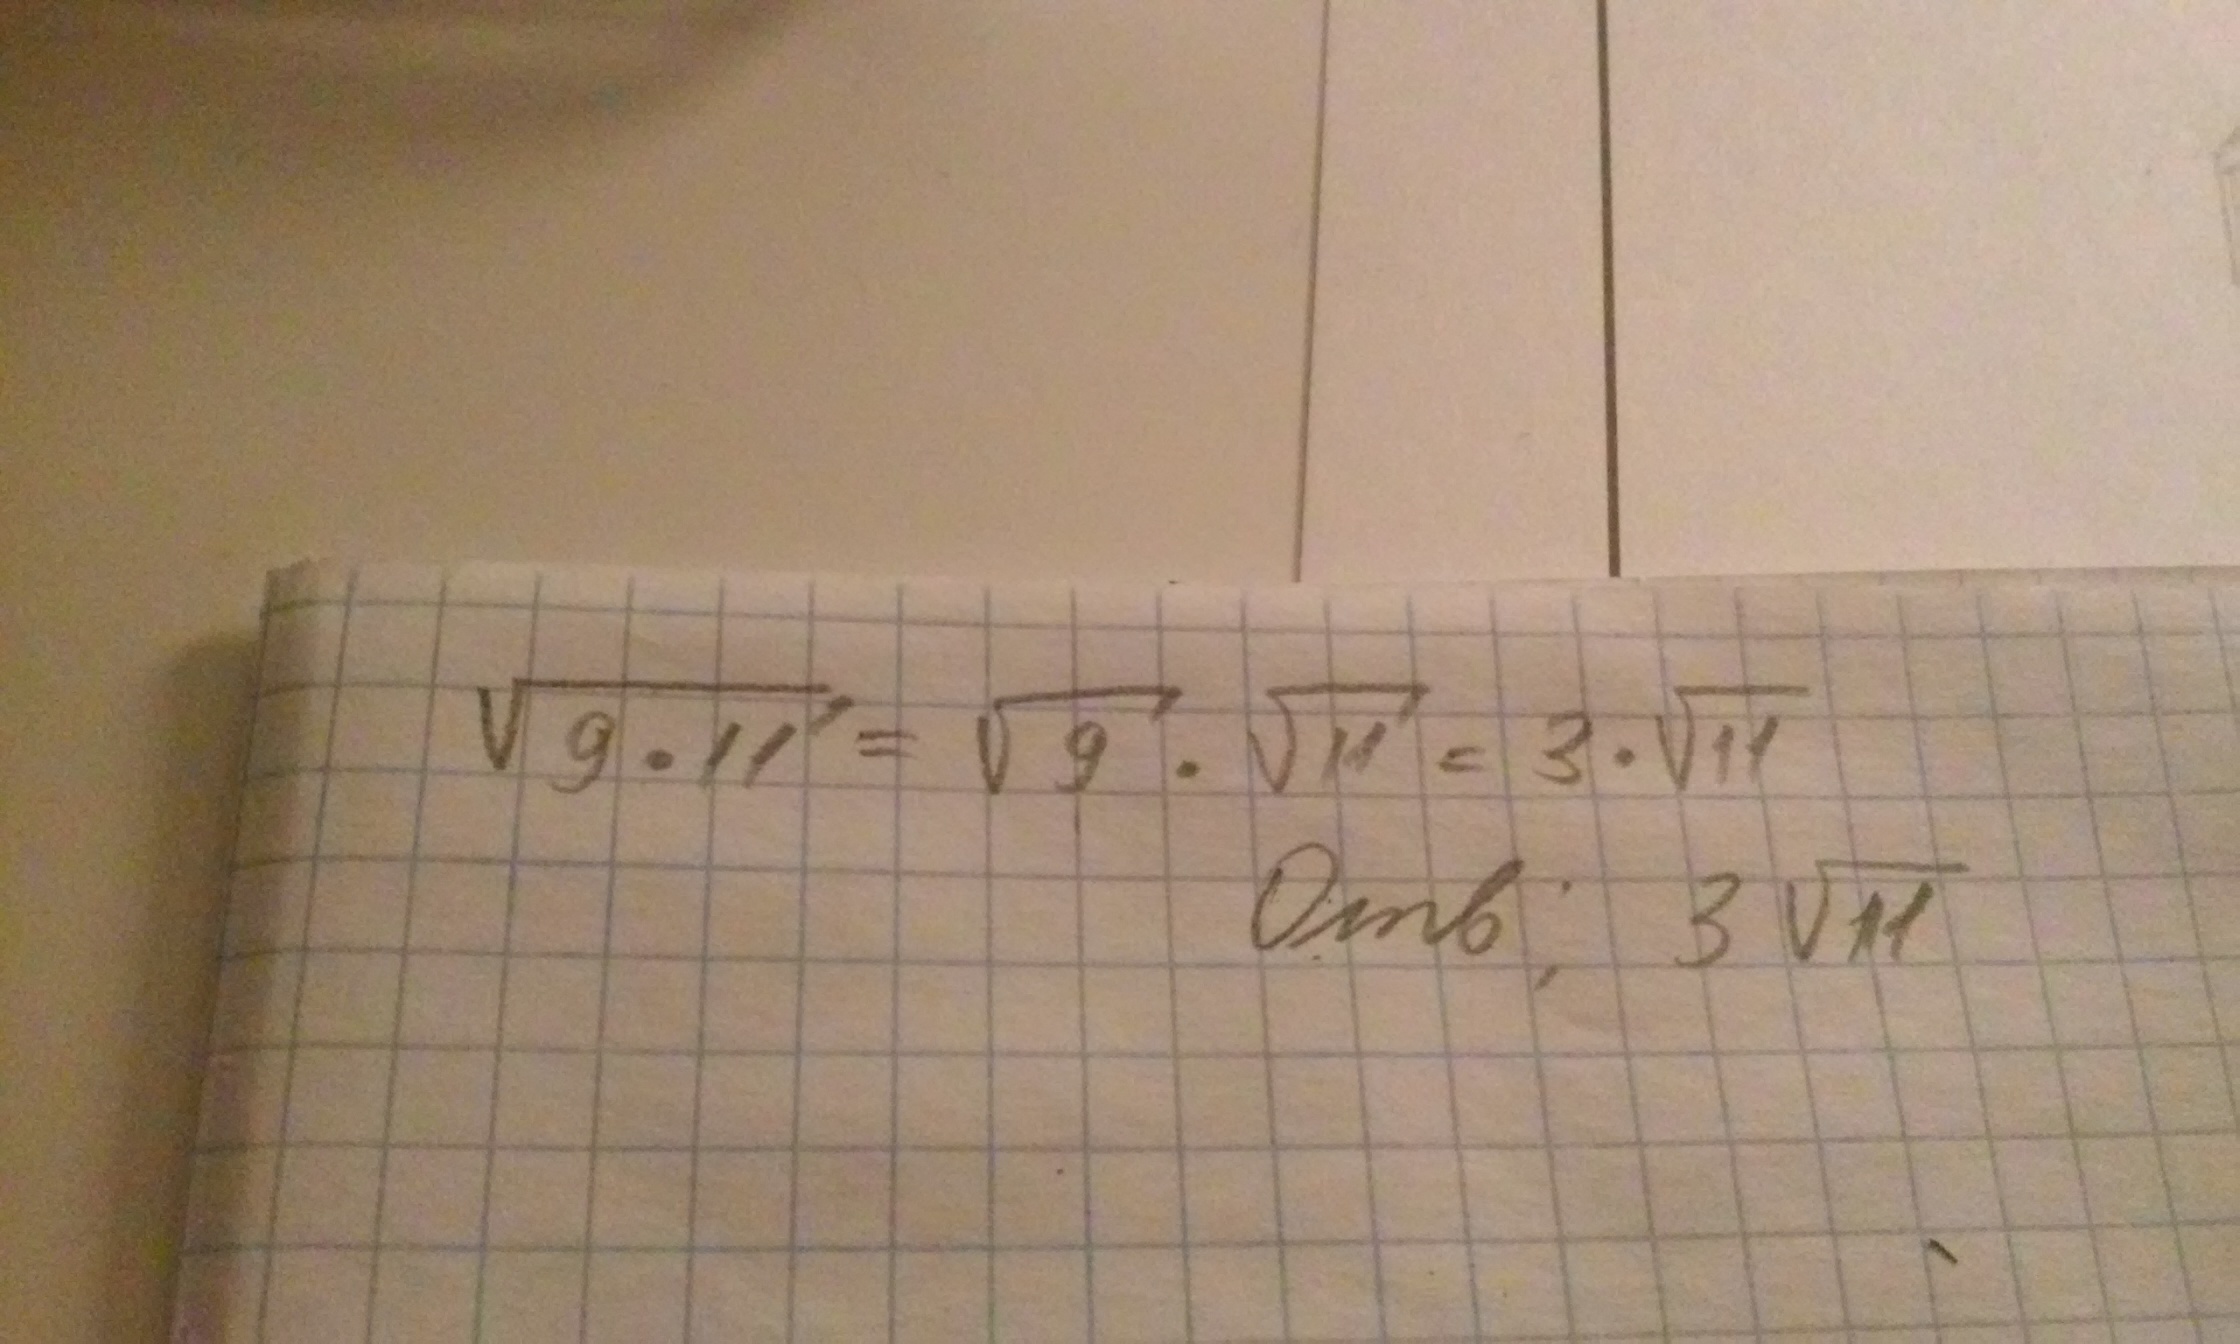 √9·11 = √9 · √11 = 3·√11
Отв: 3√11